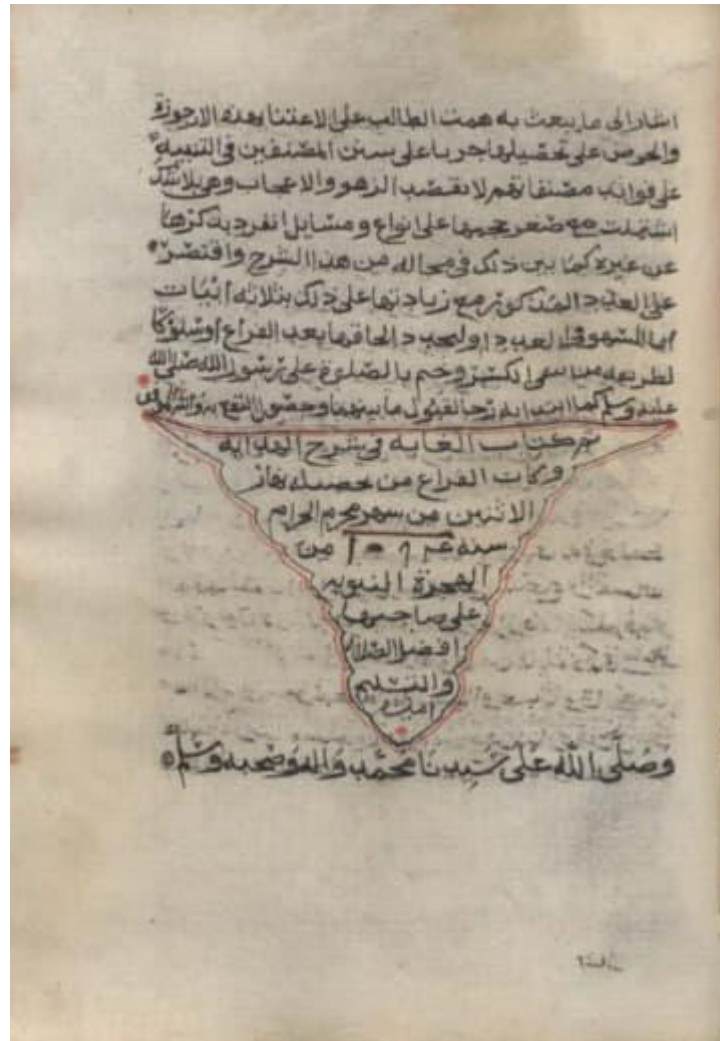 اشار الى ما يبعث به همت الطالب على الاعتنا بهذه الارجوزة
والحرص على تحصيلها جريا على سنن المصنفين في التنبيه
على فوايد مصنفاتهم لا بقصد الزهو والاعجاب وهي بلا شك
اشتملت مع صغر حجمها على انواع ومسايل انفرد بذكرها
عن غيره كما بين ذلك في محاله من هذا الشرح واقتصر
على العدد المذكور مع زيادتها على ذلك بثلاثه ابيات
اما لسهو في العدد او لتجدد الحاقها بعد الفراغ او سلوكا
لطريقه من الكسر وختم بالصلوة على رسول الله صلى الله
عليه وسلم كما ابتدا به رجا لقبول ما بينهما وحصول النفع به والله
تم كتاب الغايه في شرح الهدايه
وكان الفراغ من تحصيله نهار
الاثنين من شهر محرم الحرام
سنه من
الهجرة النبويه
على صاحبها
افضل الصلاة
والتسليم
امين
وصلى الله على سيدنا محمد واله وصحبه وسلم